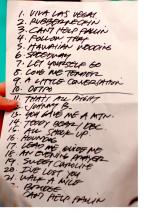 1. VIVA LAS VEGAS
2. RUBBERNECKIN
3. CAN'T HELP FALLIN
4. FOLLOW THAT
5. HAWAIIAN
6. SPEEDWAY
7. LET YOURSELF GO
8. LOVE ME TENDER
9. A LITTLE CONVERSATION
10. OUTRO
11. THAT'S ALL RIGHT
12. JOHNNY B.
13. YOU GAVE ME A MTN.
14. TEDDY BEAR / DBC
15. ALL SHOOK UP
16. HOUNDOG
17. LEAD ME GUIDE ME
18. AN EVENING PRAYER
19. SWEET CAROLINE
20. I'VE LOST YOU
21. WALK A MILE
BRIDGE
CAN'T HELP FALLIN